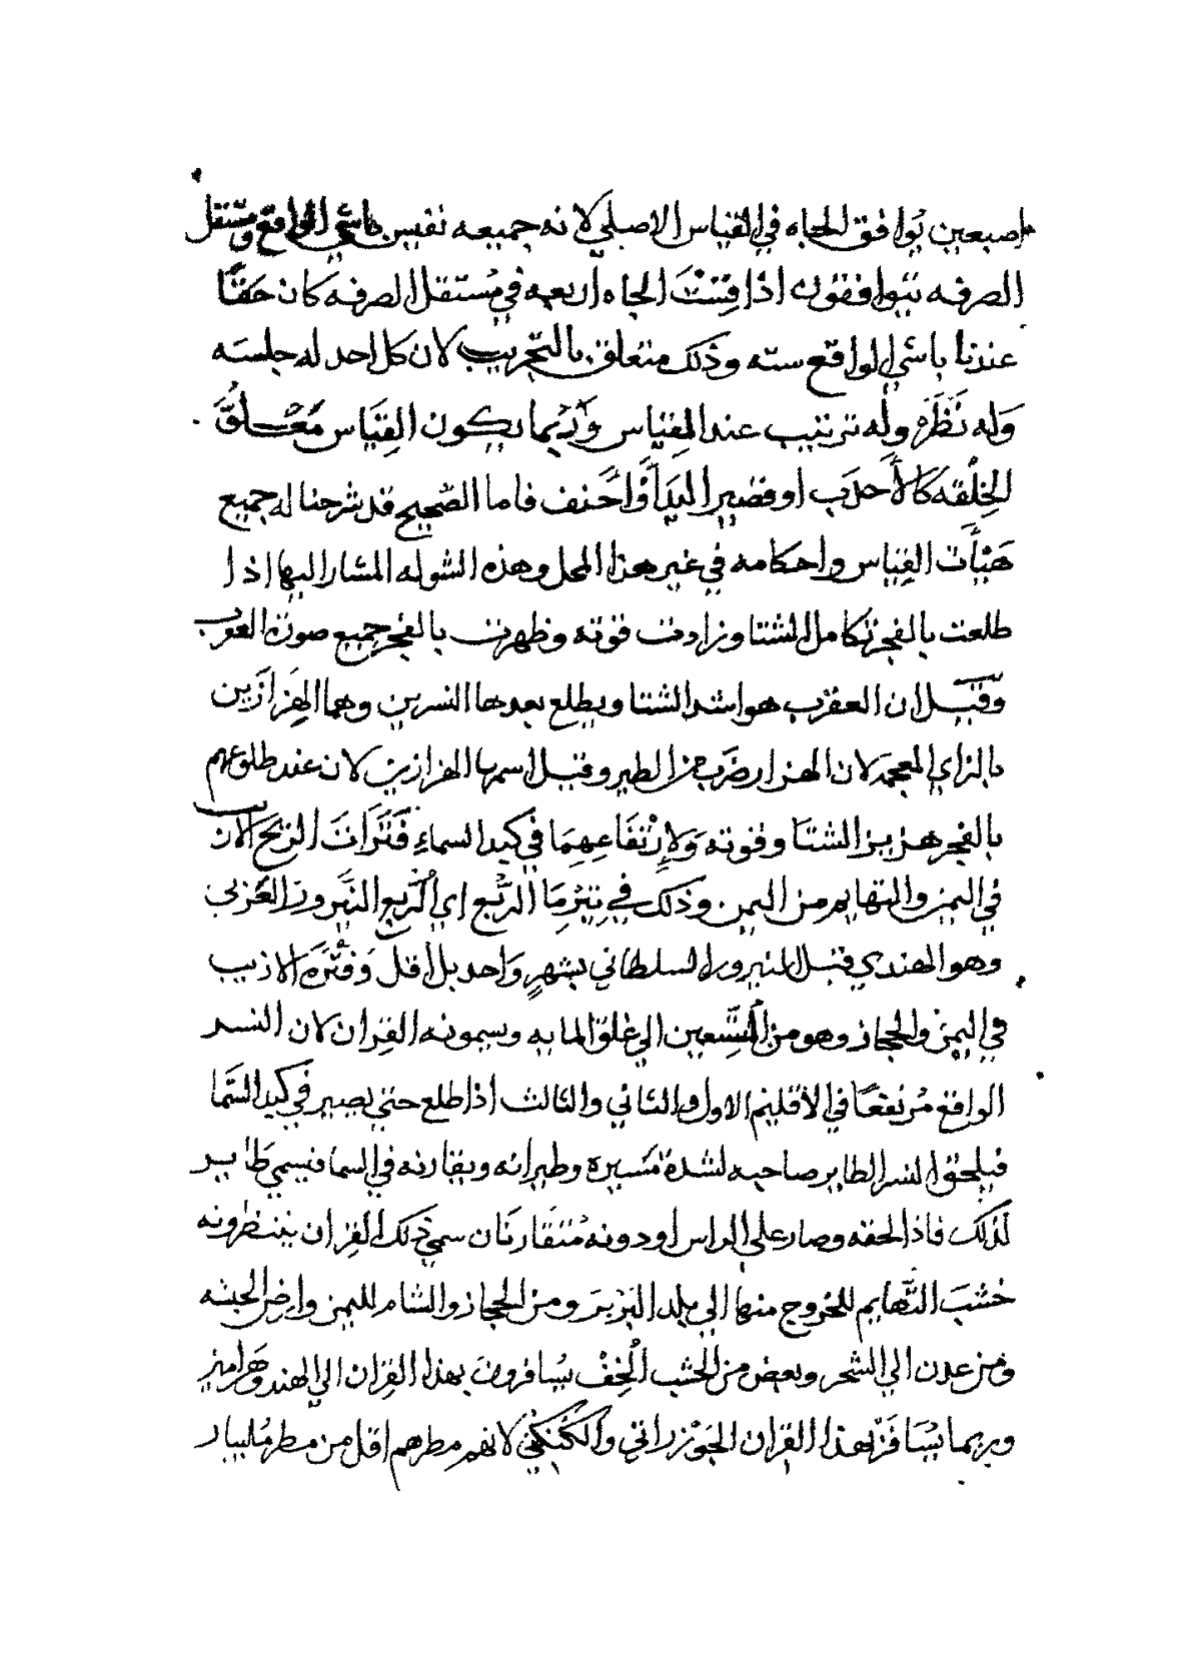 اصبعين يوافق الجاه في القياس الاصلي لانه جميعه نفيس باشي الواقع ومستقل
الصرفه يتوافقون اذا قِسْتَ الجاه اربعه في مستقل الصرفه كان حقّاً
عندنا باشي الواقع سته وذلك متعلق بالتجريب لان كل احد له جلسته
وَله نَظَره وله ترتيب عند القياس وَرُبَما يكون القيَاس مَعْلُوقَ
الخِلْقه كالأَحدَب او قصير اليد أَوْ أَحنف فاما الصَّحيح قد شرحنا له جميع
هَيْأَت القِياس واحكامه في غير هذا المحل وهذه الشوله المشار اليها اذا
طلعت بالفجر تكامل الشتا وزادت قوته وظهرت بالفجر جميع صورة العقرب
وَقيل ان العقرب هو اشد الشتا ويطلع بعدها النسرين وهما الهَزَارَين
بالزاي المعجمه لان الهزار ضرب من الطير وقيل اسمها الهزارين لان عند طلوعهم
بالفجر هزيز الشتا وقوته وَلارْتفَاعِهِمَا في كبد السماءِ فَتَرَاتَ الريح الازيب
في اليمن والتهايم من اليمن. وذلك في نِيْرَمَا الرُّبع اي الرُّبع النيروز العَزبي
وهو الهندي قبل النيروز السلطاني بشهرٍ وَاحد بل اقل وَفَتْرَة الازيب
في اليمن والحجاز وهو من التِّسعين الي غلق المايه ويسمونه القِران لان النسر
الواقع مُرتفعًا في الاقليم الاول والثاني والثالث اذا طلع حتي يصير في كبد السَّما
فيلحق النسر الطاير صاحبه لشدة مَسيره وطيرانه ويقارنه في السما فسمي طاير
لذلك فاذا لحقه وصار علي الراس او دونه مُتَقَارنَان سمي ذلك القِران ينتظرونه
خشبَ التَّهايم للخروج منها الي بلد البَرْبَر ومن الحجاز والشام لليمن وارض الحبشه
ومن عدن الي الشحر وبعض من الخشب الخِفْ يسافرون بهذا القِران الي الهند وَهَرامِيز
وربما يسافَر بهذا القِران الجَوْزراتي والكُنْكَني لانهم مطرهم اقل من مطر مُليبار